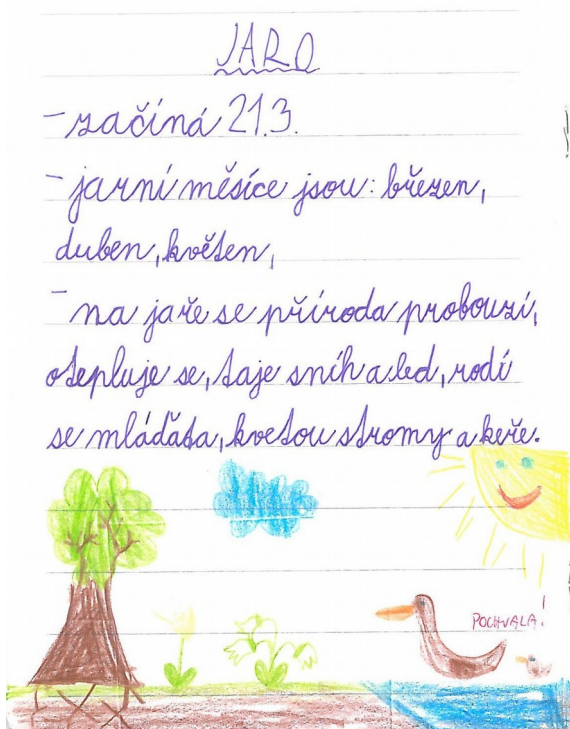 JARO
- začíná 21.3.
- jarní měsíce jsou: březen,
duben, květen,
- na jaře se příroda probouzí,
otepluje se, taje sníh a led, rodí
se mláďata, kvetou stromy a keře.
POCHVALA!